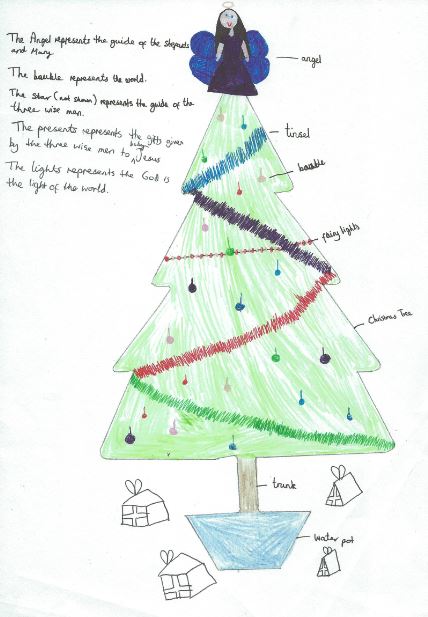 The Angel represents the guide of the shepards
and Mary.
The bauble represents the world.
The star (not shown) represents the guide of the
three wise men.
The presents represents the gifts given
by the three wise men to baby Jesus
The lights represents the God is
the light of the world.
angel
tinsel
bauble
fairy lights
Christmas Tree
trunk
water pot